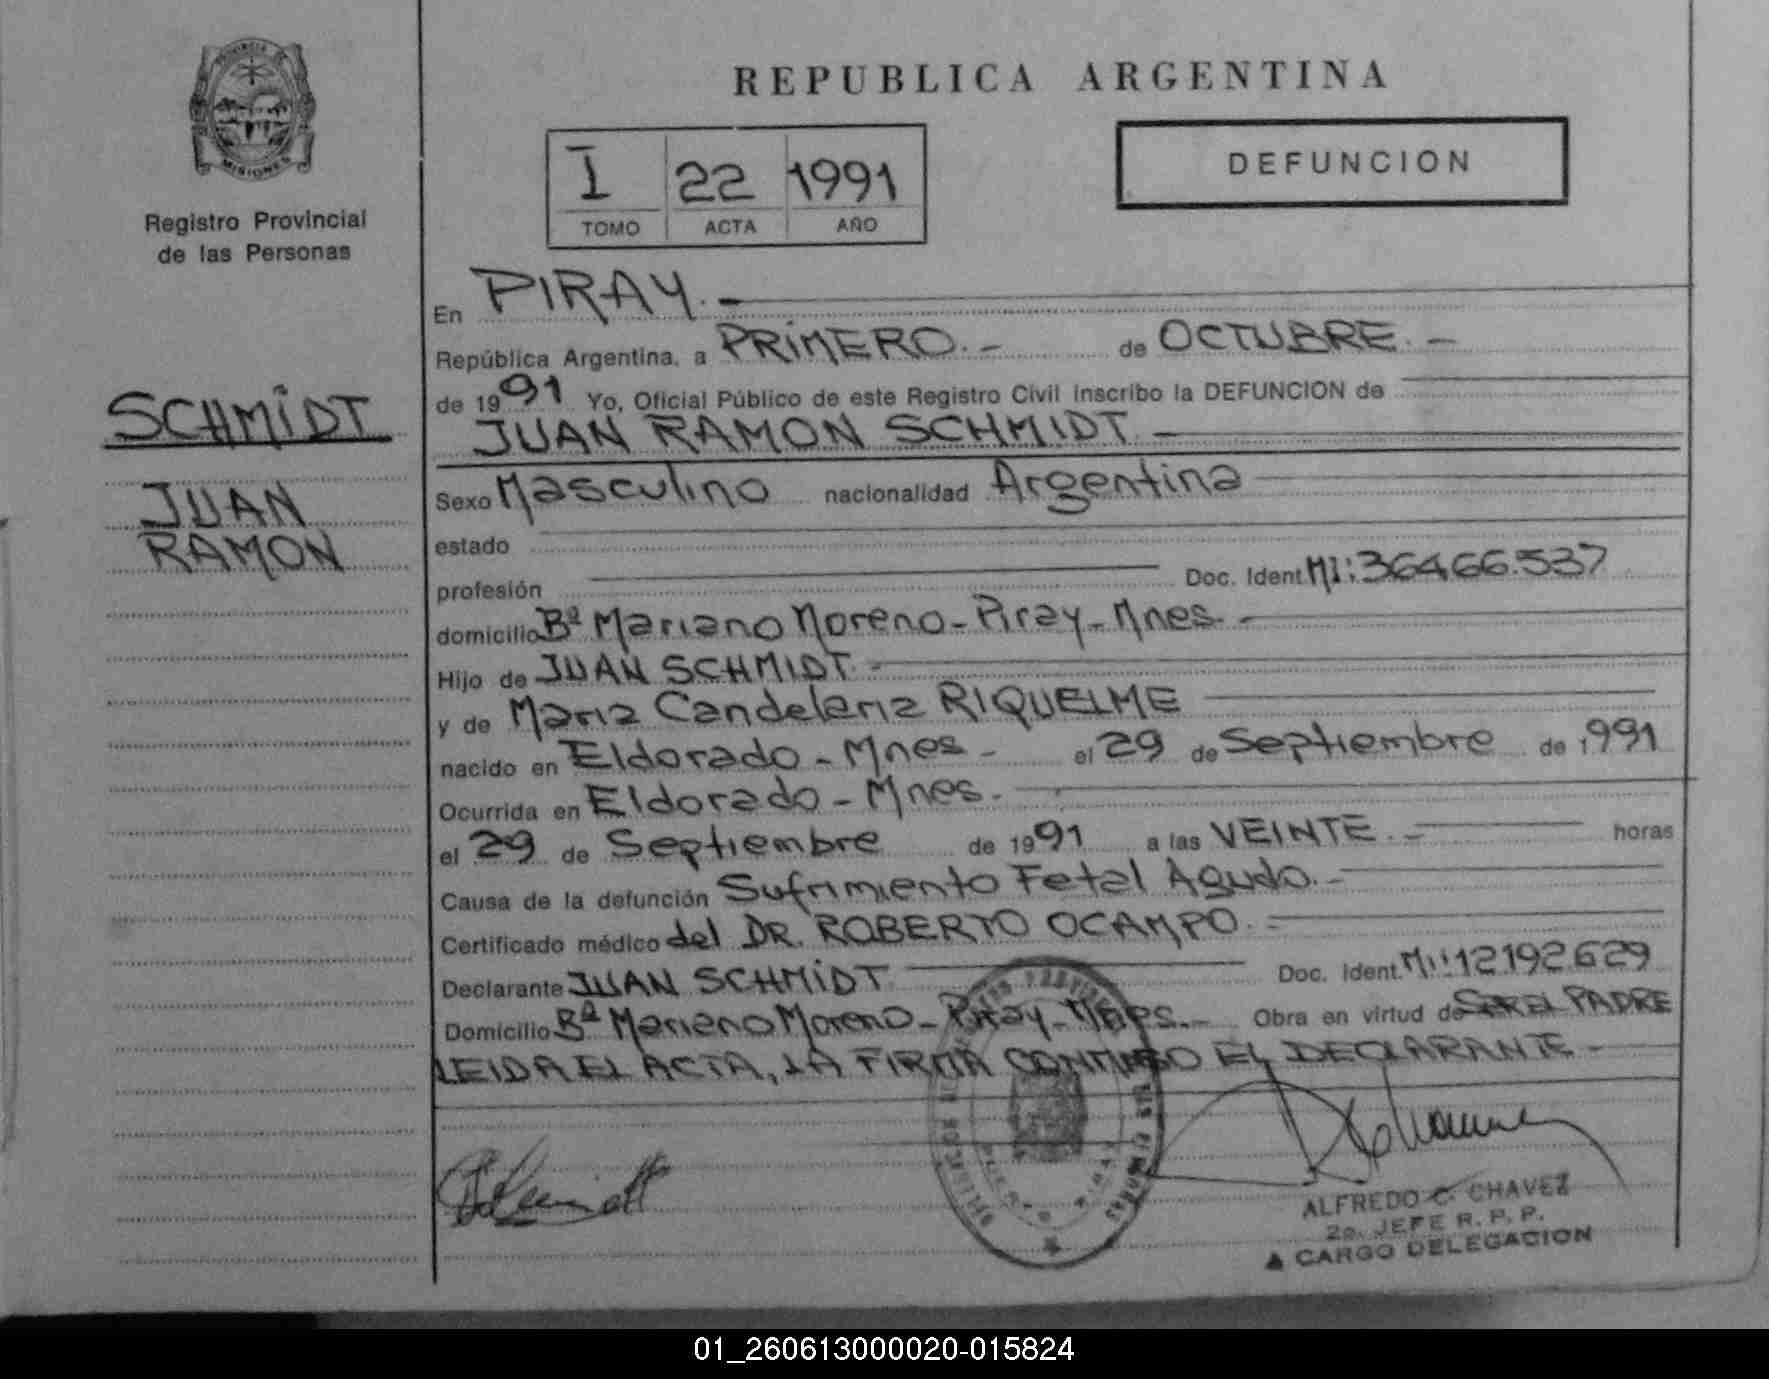 PROVINCIA DE
MISIONES
Registro Provincial
de las Personas
SCHMIDT
JUAN
RAMON
REPUBLICA ARGENTINA
I 22 1991
TOMO ACTA AÑO
DEFUNCION
En PIRAY.-
República Argentina, a PRIMERO.- de OCTUBRE.-
de 1991 Yo, Oficial Público de este Registro Civil inscribo la DEFUNCION de
JUAN RAMON SCHMIDT.-
Sexo Masculino nacionalidad Argentina
estado
profesión Doc. Ident. MI: 36466.537
domicilio Bº Mariano Moreno-Piray-Mnes.-
Hijo de JUAN SCHMIDT.-
y de Maria Candelaria RIQUELME
nacido en Eldorado-Mnes.- el 29 de Septiembre de 1991
Ocurrida en Eldorado-Mnes.-
el 29 de Septiembre de 1991 a las VEINTE.- horas
Causa de la defunción Sufrimiento Fetal Agudo.-
Certificado médico del DR. ROBERTO OCAMPO.-
Declarante JUAN SCHMIDT Doc. Ident. MI: 12192629
Domicilio Bº Mariano Moreno-Piray-Mnes.- Obra en virtud de SER EL PADRE
LEIDA EL ACTA, LA FIRMA CONMIGO EL DECLARANTE.-
ALFREDO C. CHAVEZ
2o. JEFE R. P. P.
A CARGO DELEGACION
01_260613000020-015824